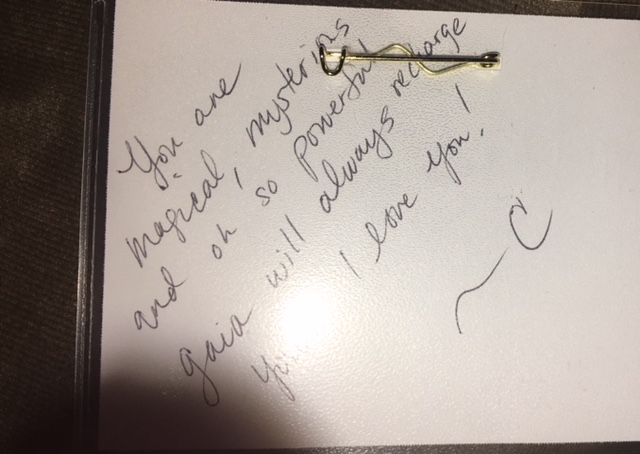 You are
magical, mysterius
and oh so powerful
gaia will always recharge
you. I love you!
~ C